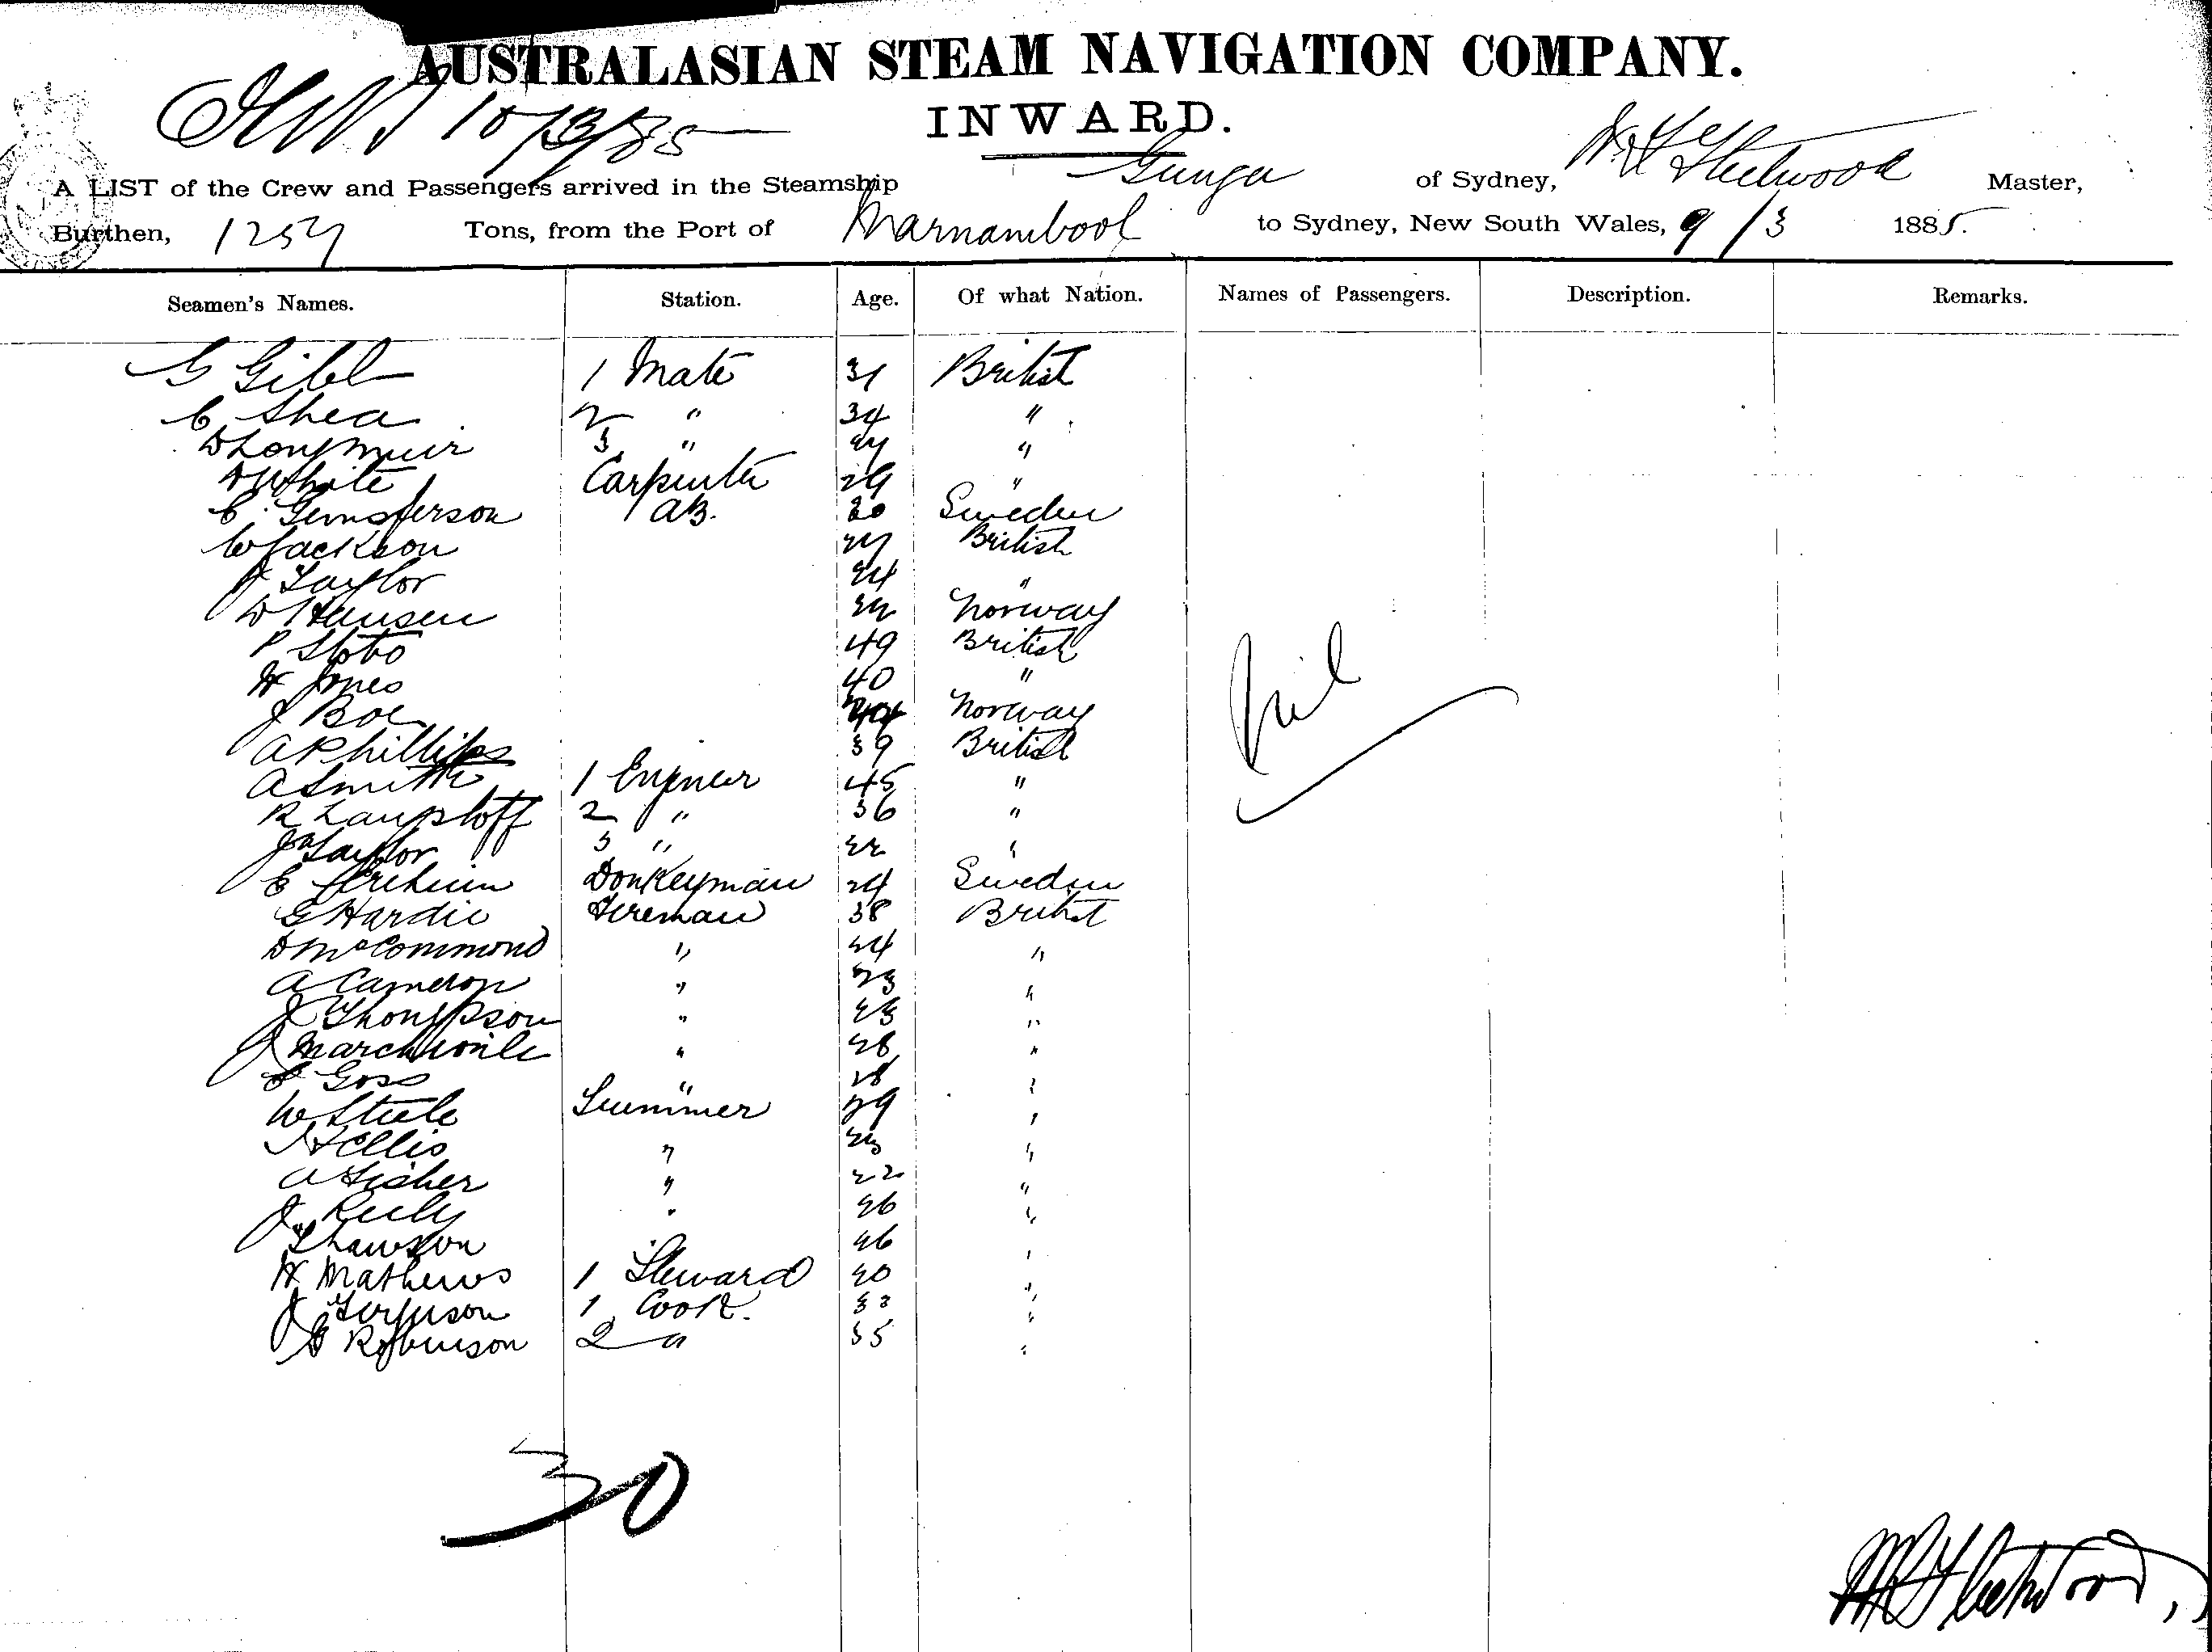 AUSTRALASIAN STEAM NAVIGATION COMPANY.
10/3/85
INWARD.
A LIST of the Crew and Passengers arrived in the Steamship Gunga of Sydney, Fleetwood Master,
Burthen, 1257 Tons, from the Port of Warnambool to Sydney, New South Wales, 9/3 1885.
Seamen's Names. Station. Age. Of what Nation. Names of Passengers. Description. Remarks.
G Gibb 1 Mate 31 British
C Shea 2 " 34 "
D Longmuir 3 " "
A White Carpenter 29 "
C. AB. Sweden
W Jackson 27 British
J Taylor 24 "
D Hansen 22 Norway
P Stobo 49 British
H Jones 40 "
J Boe Norway
A Phillips 39 British
A Smith 1 Engneer 45 "
R Langstoff 2 " 36 "
Jno Taylor 3 " 22 "
C Donkeyman 24 Sweden
G Hardie Fireman 38 British
D McCommond " 24 "
A Cameron " 23 "
J Thompson " 23 "
J Marchwile " 28 "
Goss " 28 "
W Steele Trimmer 29 "
H Ellis " "
A Fisher " 22 "
J Reily " 26 "
Thawson 26 "
H Mathews 1 Steward 40 "
J Ferguson 1 Cook. 33 "
G Robinson 2 " 35 "
Nil
30
Fleetwood